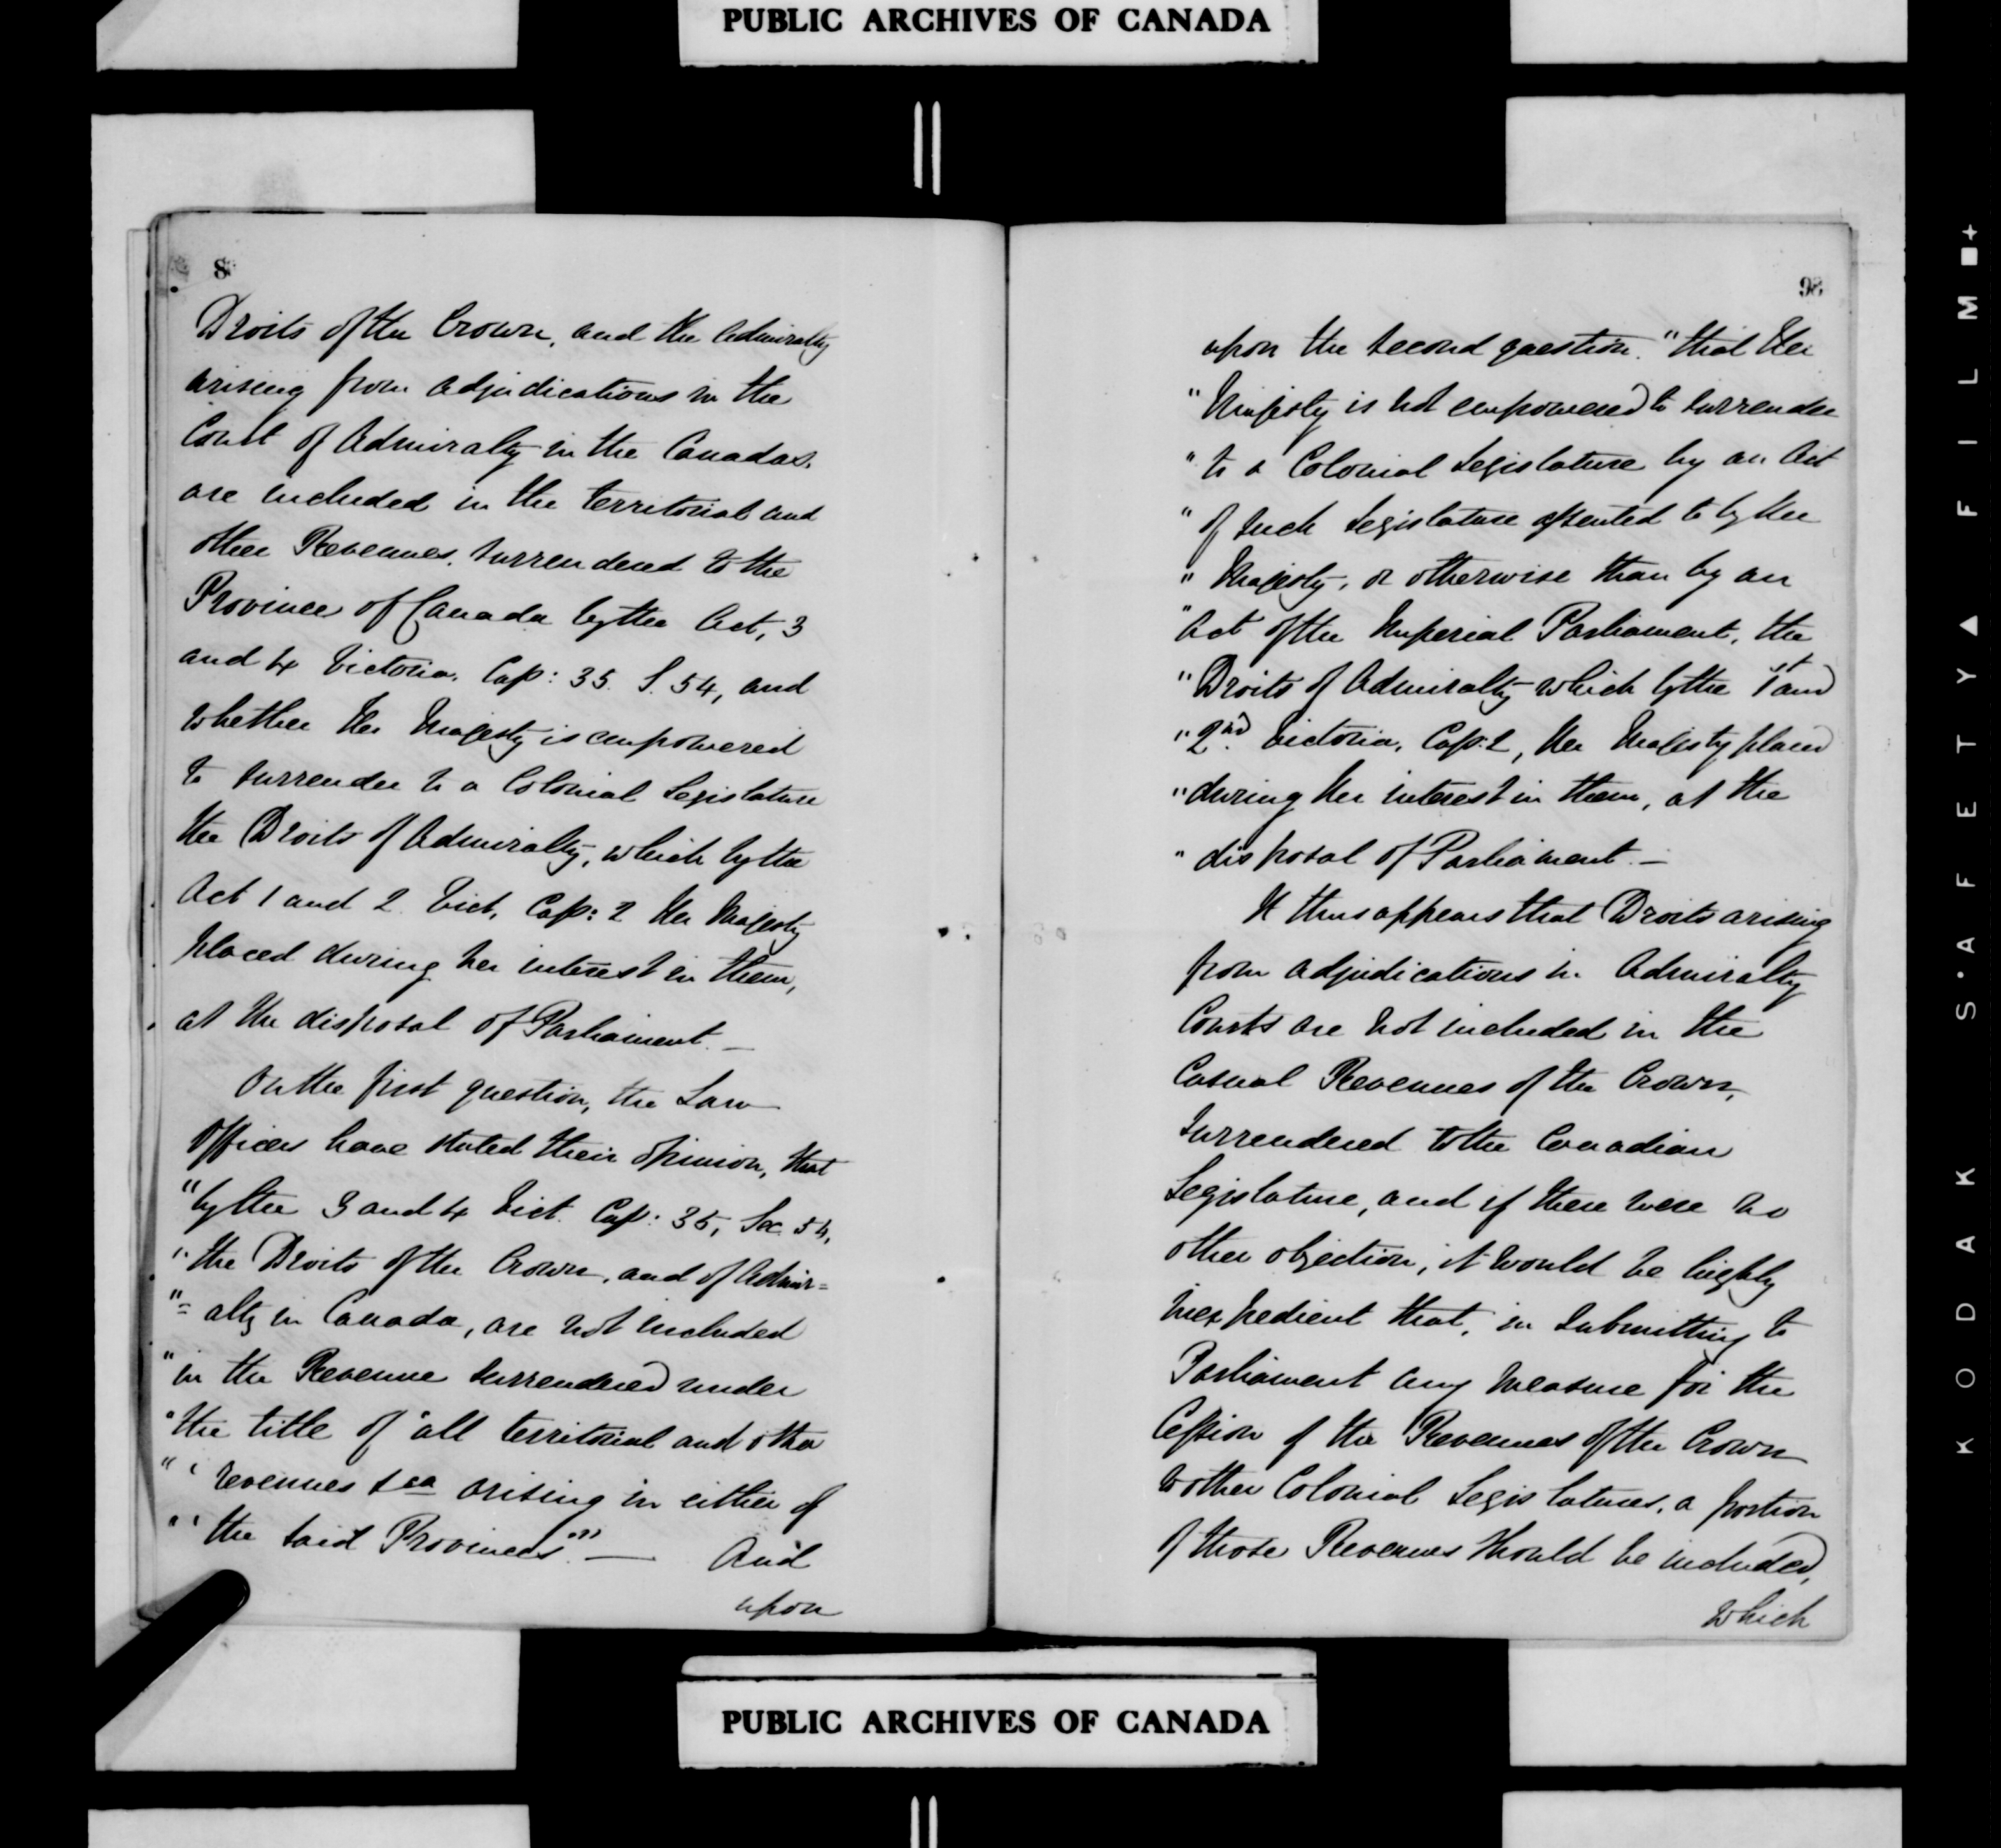 PUBLIC ARCHIVES OF CANADA
8
Droits of the Crown, and the Admiralty
arising from adjudications in the
Court of Admiralty in the Canadas,
are included in the territorial and
other Revenues, surrendered to the
Province of Canada by the Act, 3
and 4 Victoria, Cap: 35. S. 54, and
whether Her Majesty is empowered
to surrender to a Colonial Legislature
the Droits of Admiralty, which by the
Act 1 and 2 Vict, Cap: 2 Her Majesty
placed during her interest in them,
at the disposal of Parliament. —
On the first question, the Law
Officers have stated their opinion, that
"by the 3 and 4 Vict. Cap: 35, Sec 54,
"the Droits of the Crown, and of Admir=
"=alty in Canada, are not included
"in the Revenue surrendered under
"the title of 'all territorial and other
"'revenues &ca arising in either of
"'the said Provinces.'" — And
upon
98
upon the second question. "that Her
"Majesty is not empowered to surrender
"to a Colonial Legislature by an Act
"of such Legislature assented to by Her
"Majesty, or otherwise than by an
"Act of the Imperial Parliament, the
"Droits of Admiralty which by the 1st and
"2nd Victoria, Cap. 2, Her Majesty placed
"during Her interest in them, at the
"disposal of Parliament. —
It thus appears that Droits arising
from adjudications in Admiralty
Courts are not included in the
Casual Revenues of the Crown,
surrendered to the Canadian
Legislature, and if there were no
other objection, it would be highly
inexpedient that, in submitting to
Parliament any measure for the
Cession of the Revenues of the Crown
to other Colonial Legislatures, a portion
of those Revenues should be included,
which
PUBLIC ARCHIVES OF CANADA
KODAK S'AFETY▲FILM■+